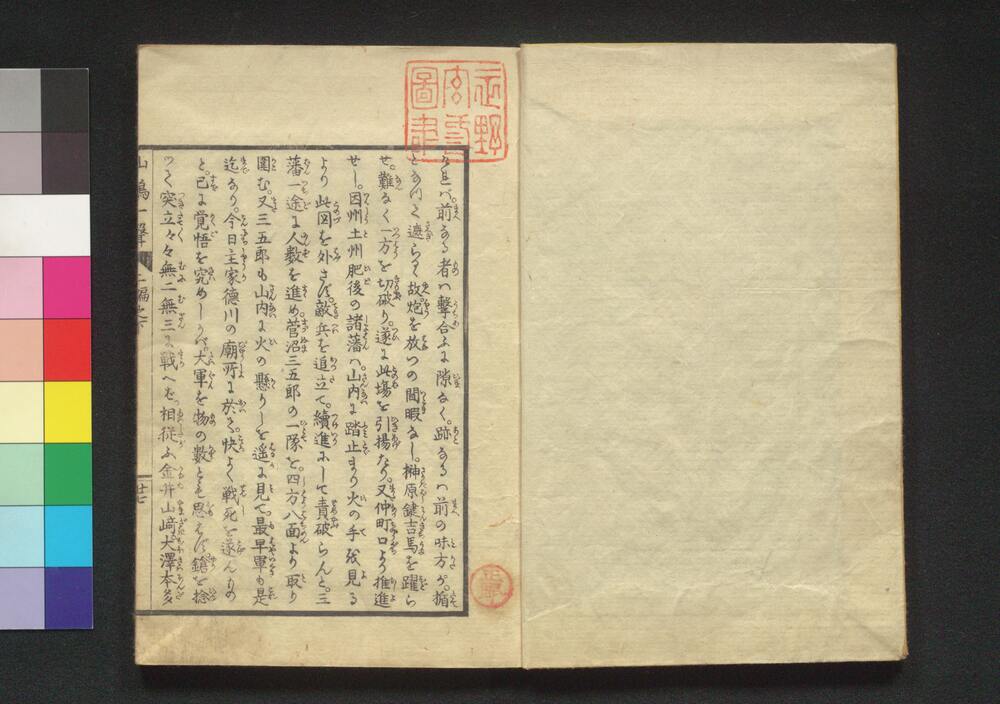 前なる者ハ撃合ふに隙なく。跡なるハ前の味方が。楯
となつて遮らで敵炮を放つの間暇なし。榊原鍵吉馬を躍ら
せ。難なく一方を切破り。遂に此場を引揚たり。又仲町口より推進
せし。因州土州肥後の諸藩ハ。山内に踏止まり火の手を見る
より此図を外さず。敵兵を追立て。續進にして責破らんと。三
藩一途に人數を進め。菅沼三五郎の一隊を。四方八面より取り
圍む。又三五郎も山内に火の懸りしを遥に見て。最早軍も是
迄なり。今日主家徳川の廟所に於て。快よく戦死を遂んもの
と。已に覚悟を究めしかバ。大軍を物の數とも思はず。鎗を捻
つて突立々々無二無三に戦へば。相從ふ金井山﨑大澤本多
山嶋一聲 二編之下 廿